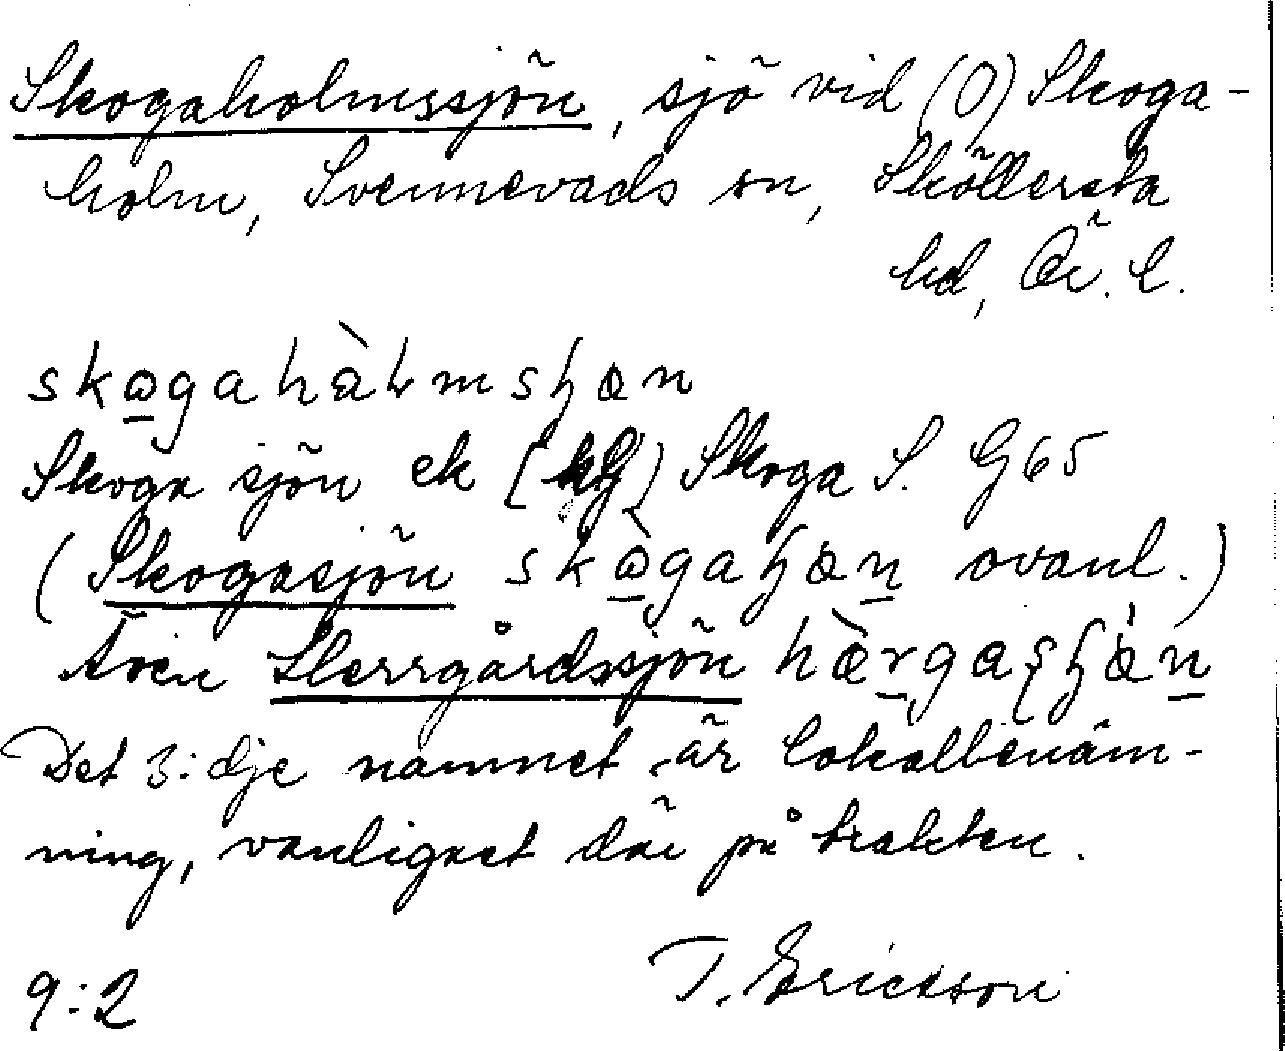 Skogaholmssjön, sjö vid (O) Skoga-
holm, Svennevads sn, Sköllersta
hd, Ör. l.
skɷgahàlmsɧœn
Skoga sjön ek [kG] Skoga S. G65
(Skogasjön skɷ̀gaɧœn ovanl.)
Även Herrgårdssjön hæ̀rgasɧœ́n
Det 3:dje namnet är lokalbenäm-
ning, vanligast där på trakten.
T. Ericsson
9:2